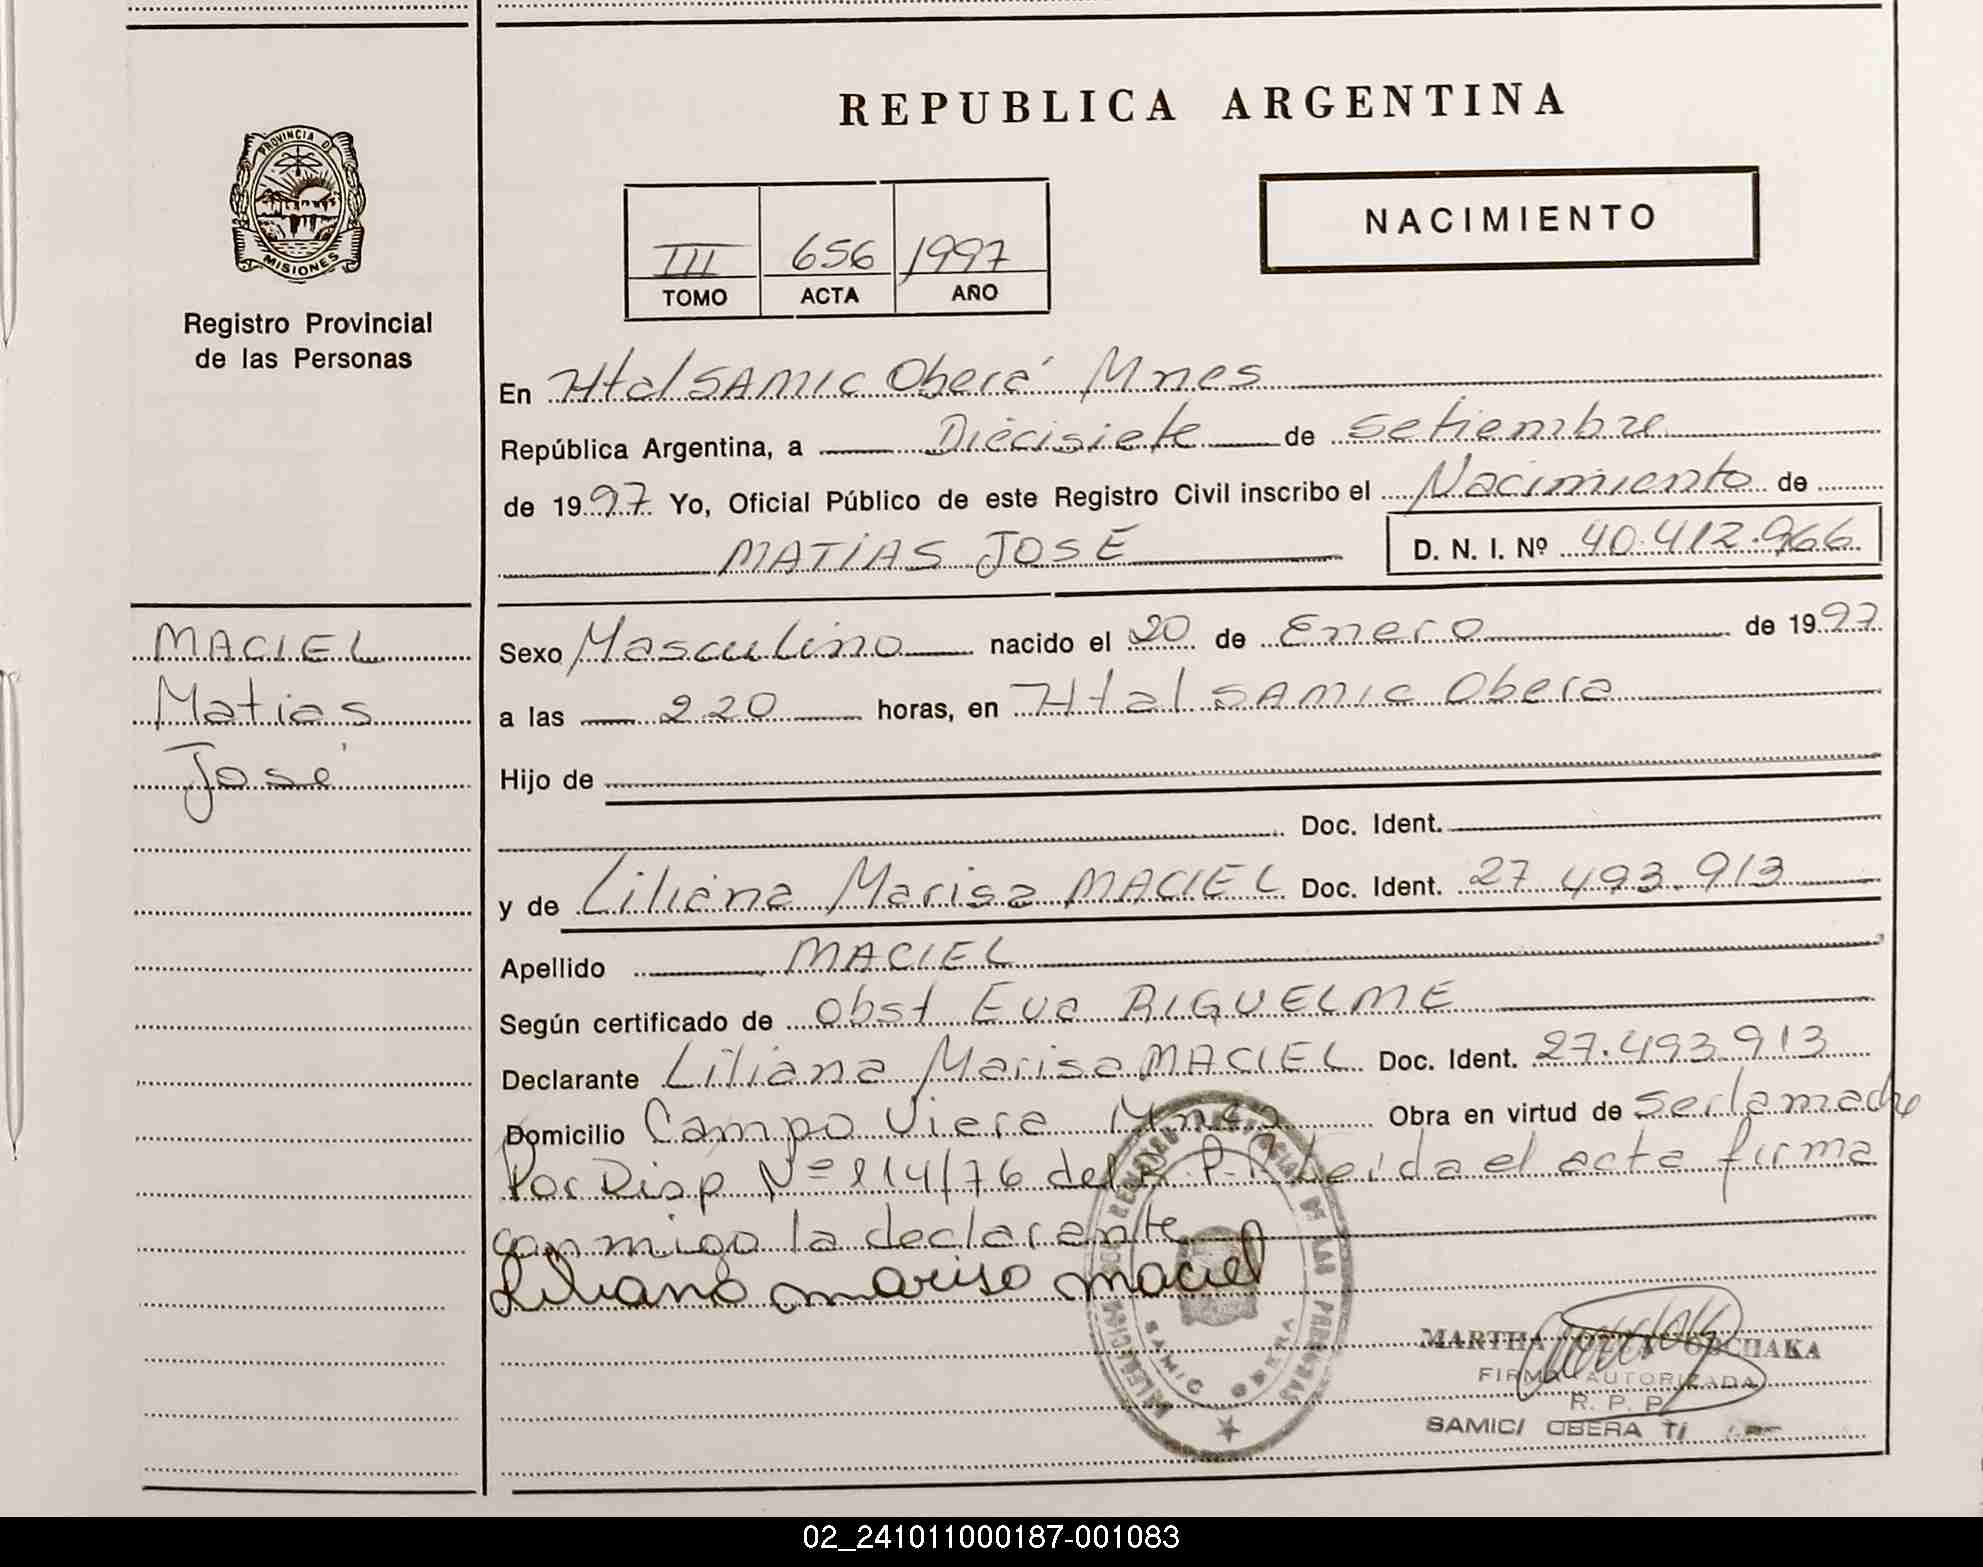 REPUBLICA ARGENTINA
PROVINCIA DE
MISIONES
Registro Provincial
de las Personas
NACIMIENTO
III 656 1997
TOMO ACTA AÑO
En Htal SAMIC Oberá Mnes
República Argentina, a Diecisiete de Setiembre
de 1997 Yo, Oficial Público de este Registro Civil inscribo el Nacimiento de
MATIAS JOSÉ D. N. I. Nº 40.412.966
MACIEL
Matias
José
Sexo Masculino nacido el 20 de Enero de 1997
a las 2 20 horas, en Htal SAMIC Obera
Hijo de
Doc. Ident.
y de Liliana Marisa MACIEL Doc. Ident. 27 493.913
Apellido MACIEL
Según certificado de Obst Eva RIQUELME
Declarante Liliana Marisa MACIEL Doc. Ident. 27.493.913
Domicilio Campo Viera Mnes Obra en virtud de ser la madre
Por Disp Nº 114/76 del R P-P Leida el acta firma
conmigo la declarante
Liliana marisa maciel
DE LAS PERSONAS
SAMIC OBERA
MARTHA
FIRMA AUTORIZADA
R. P. P.
SAMIC/ OBERA
02_241011000187-001083